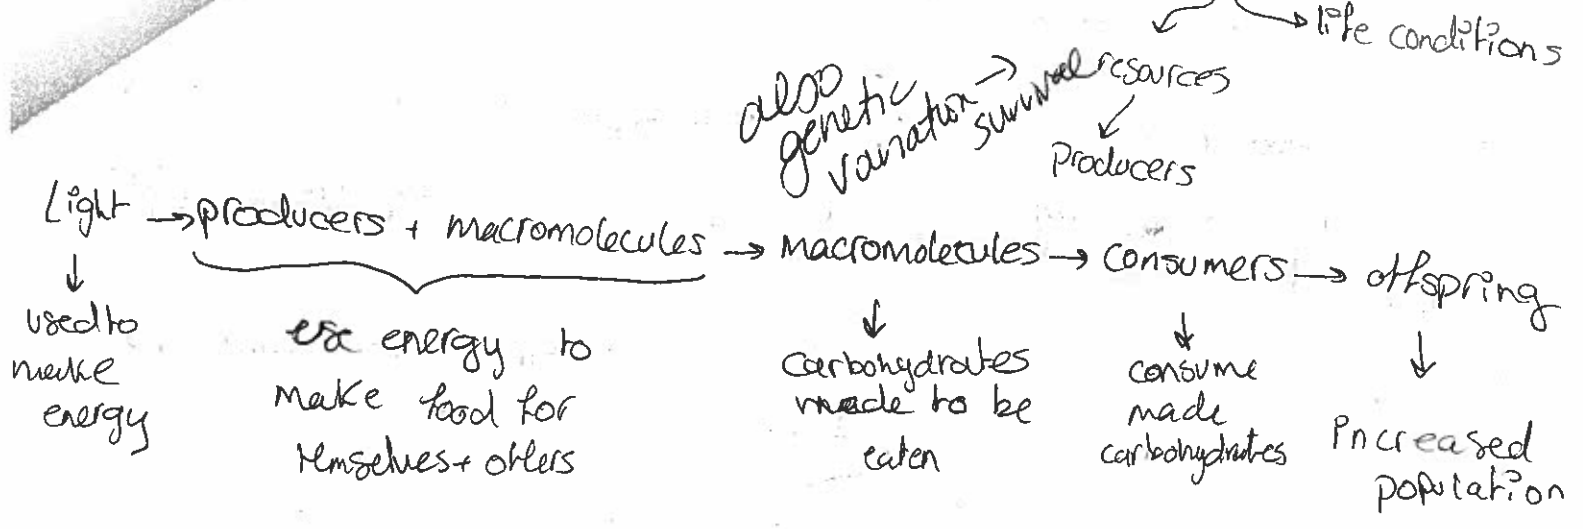 → life conditions
also
genetic
variation → survival
resources
Producers
Light → producers + macromolecules → macromolecules → consumers → offspring
used to
make
energy
use energy to
make food for
themselves + others
carbohydrates
made to be
eaten
consume
made
carbohydrates
increased
population